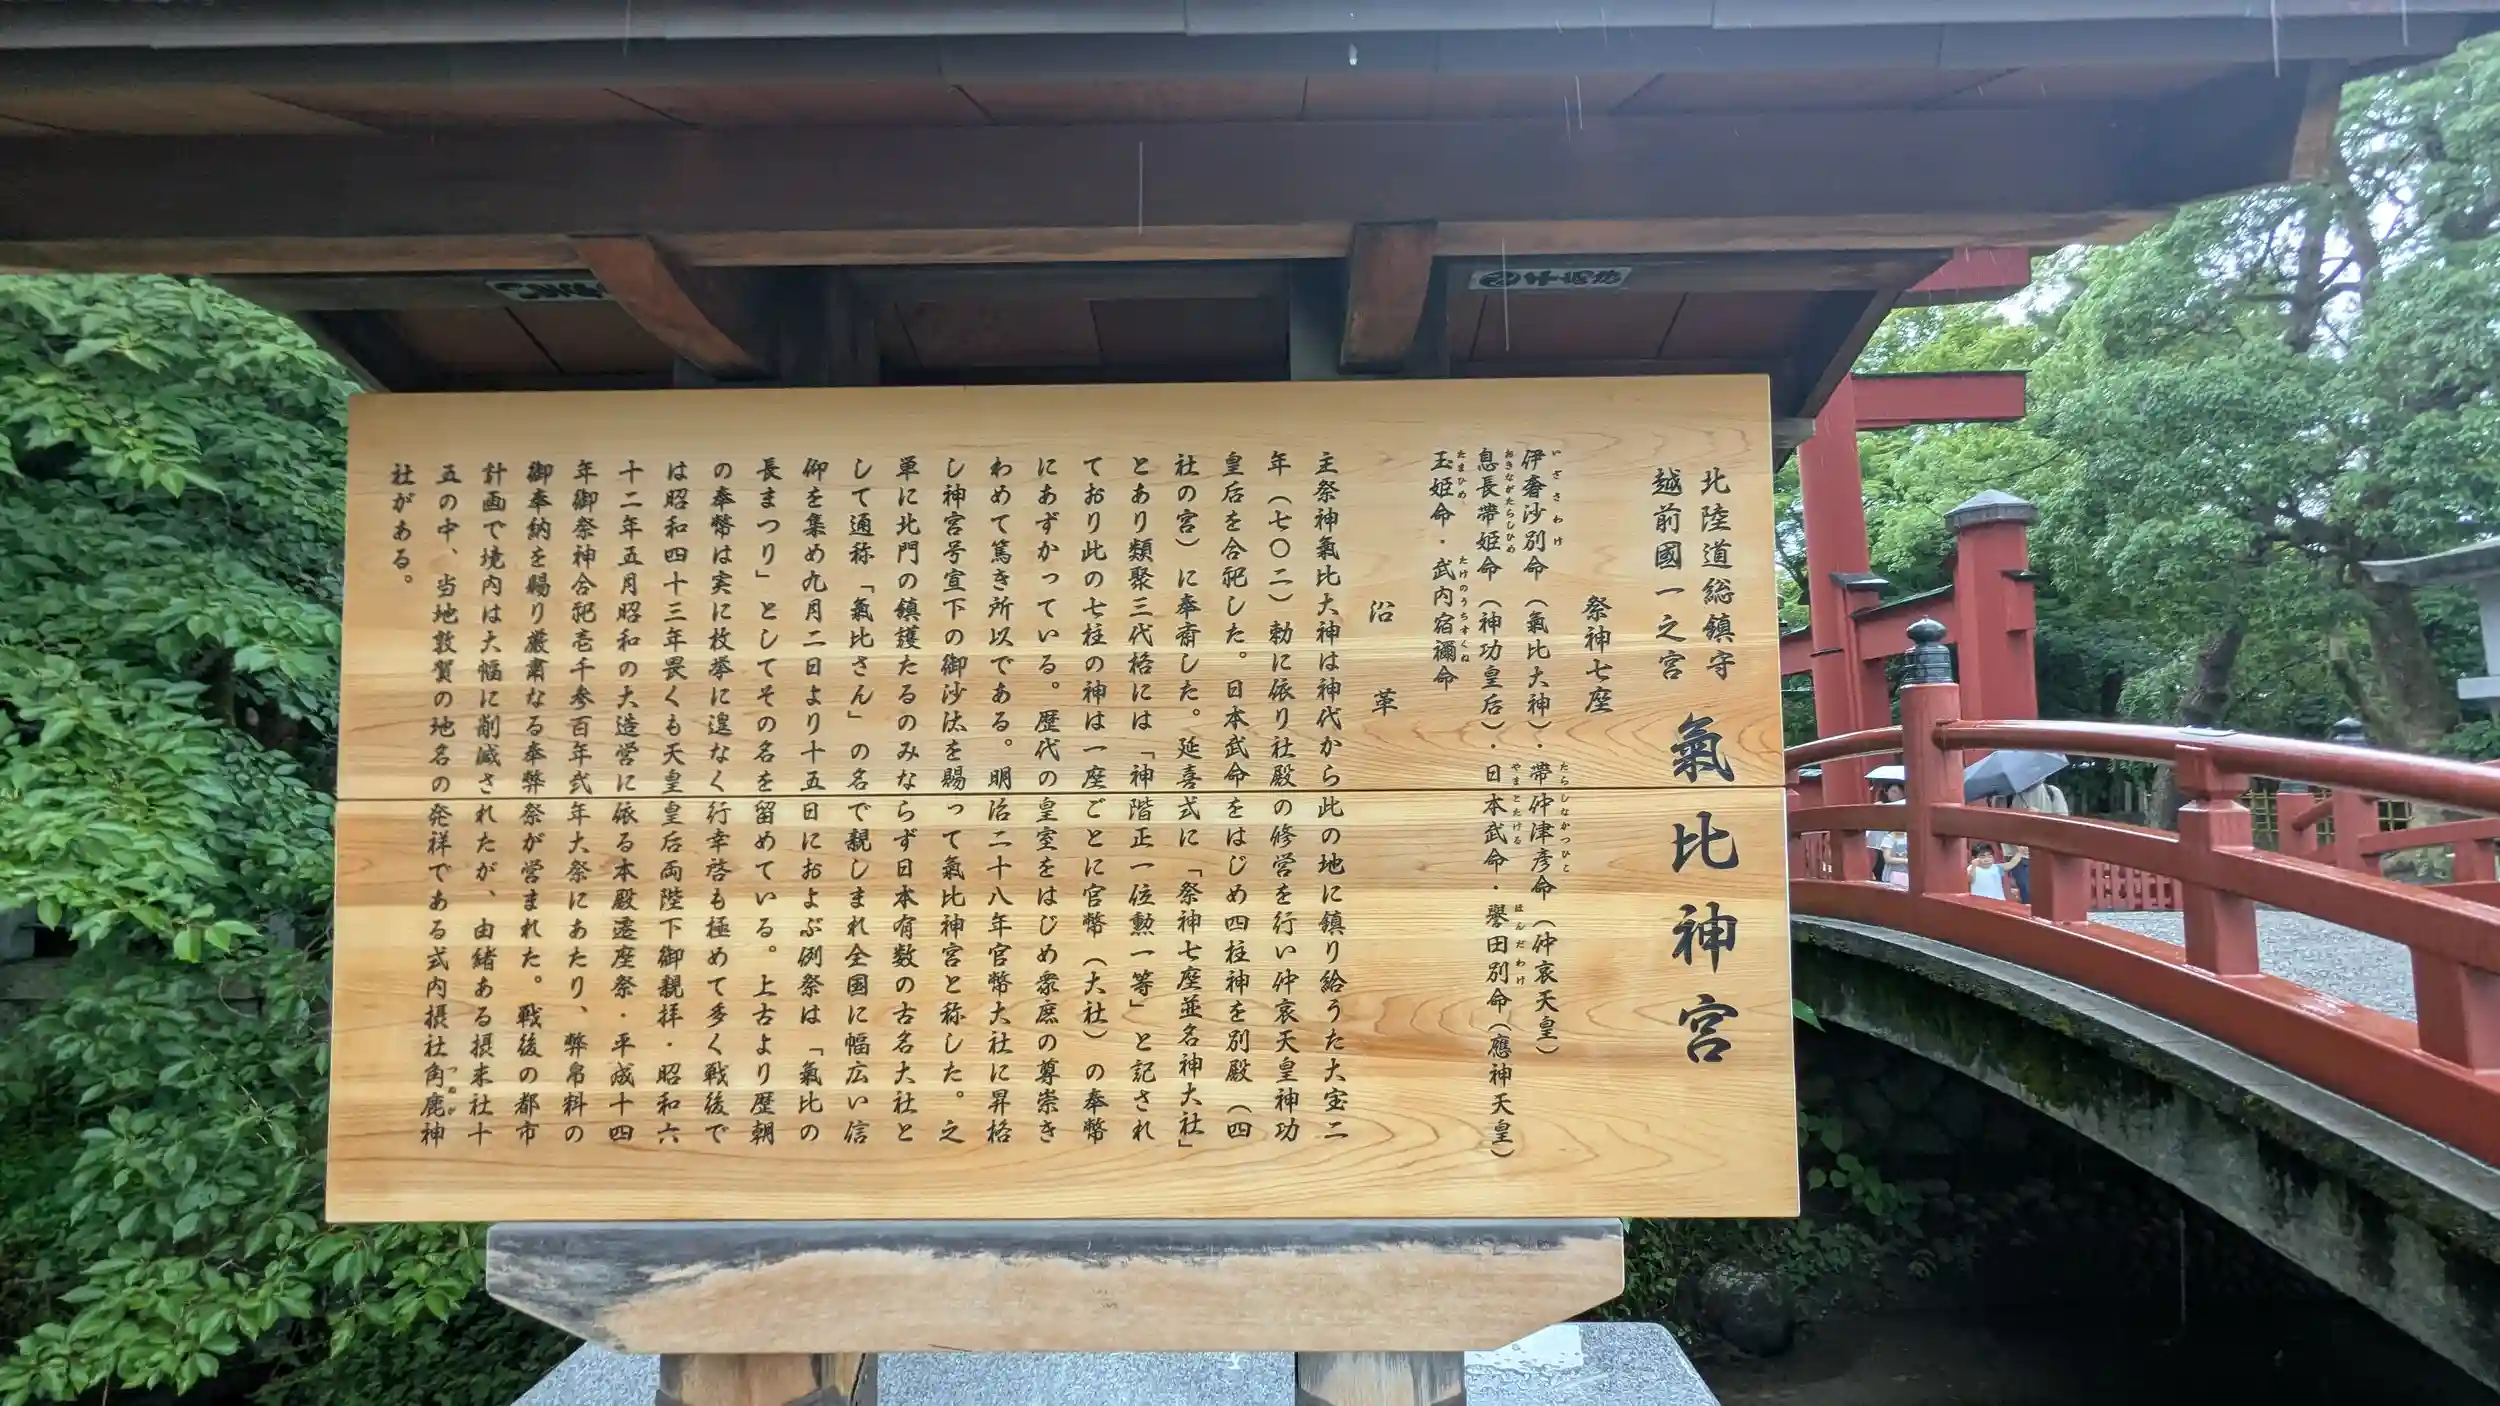 北陸道総鎮守
越前國一之宮
氣比神宮
祭神七座
いざさわけ
伊奢沙別命（氣比大神）・帶仲津彦命（仲哀天皇）
たらしなかつひこ
おきながたらしひめ
息長帶姫命（神功皇后）・日本武命・譽田別命（應神天皇）
やまとたける
ほんだわけ
たまひめ
玉姫命・武内宿禰命
たけのうちすくね
沿革
主祭神氣比大神は神代から此の地に鎮り給うた大宝二
年（七〇二）勅に依り社殿の修営を行い仲哀天皇神功
皇后を合祀した。日本武命をはじめ四柱神を別殿（四
社の宮）に奉斎した。延喜式に「祭神七座並名神大社」
とあり類聚三代格には「神階正一位勲一等」と記され
ており此の七柱の神は一座ごとに官幣（大社）の奉幣
にあずかっている。歴代の皇室をはじめ衆庶の尊崇き
わめて篤き所以である。明治二十八年官幣大社に昇格
し神宮号宣下の御沙汰を賜って氣比神宮と称した。之
単に北門の鎮護たるのみならず日本有数の古名大社と
して通称「氣比さん」の名で親しまれ全国に幅広い信
仰を集め九月二日より十五日におよぶ例祭は「氣比の
長まつり」としてその名を留めている。上古より歴朝
の奉幣は実に枚挙に遑なく行幸啓も極めて多く戦後で
は昭和四十三年畏くも天皇皇后両陛下御親拝・昭和六
十二年五月昭和の大造営に依る本殿遷座祭・平成十四
年御祭神合祀壱千参百年式年大祭にあたり、弊帛料の
御奉納を賜り厳粛なる奉弊祭が営まれた。戦後の都市
計画で境内は大幅に削減されたが、由緒ある摂末社十
五の中、当地敦賀の地名の発祥である式内摂社角鹿神
つぬが
社がある。